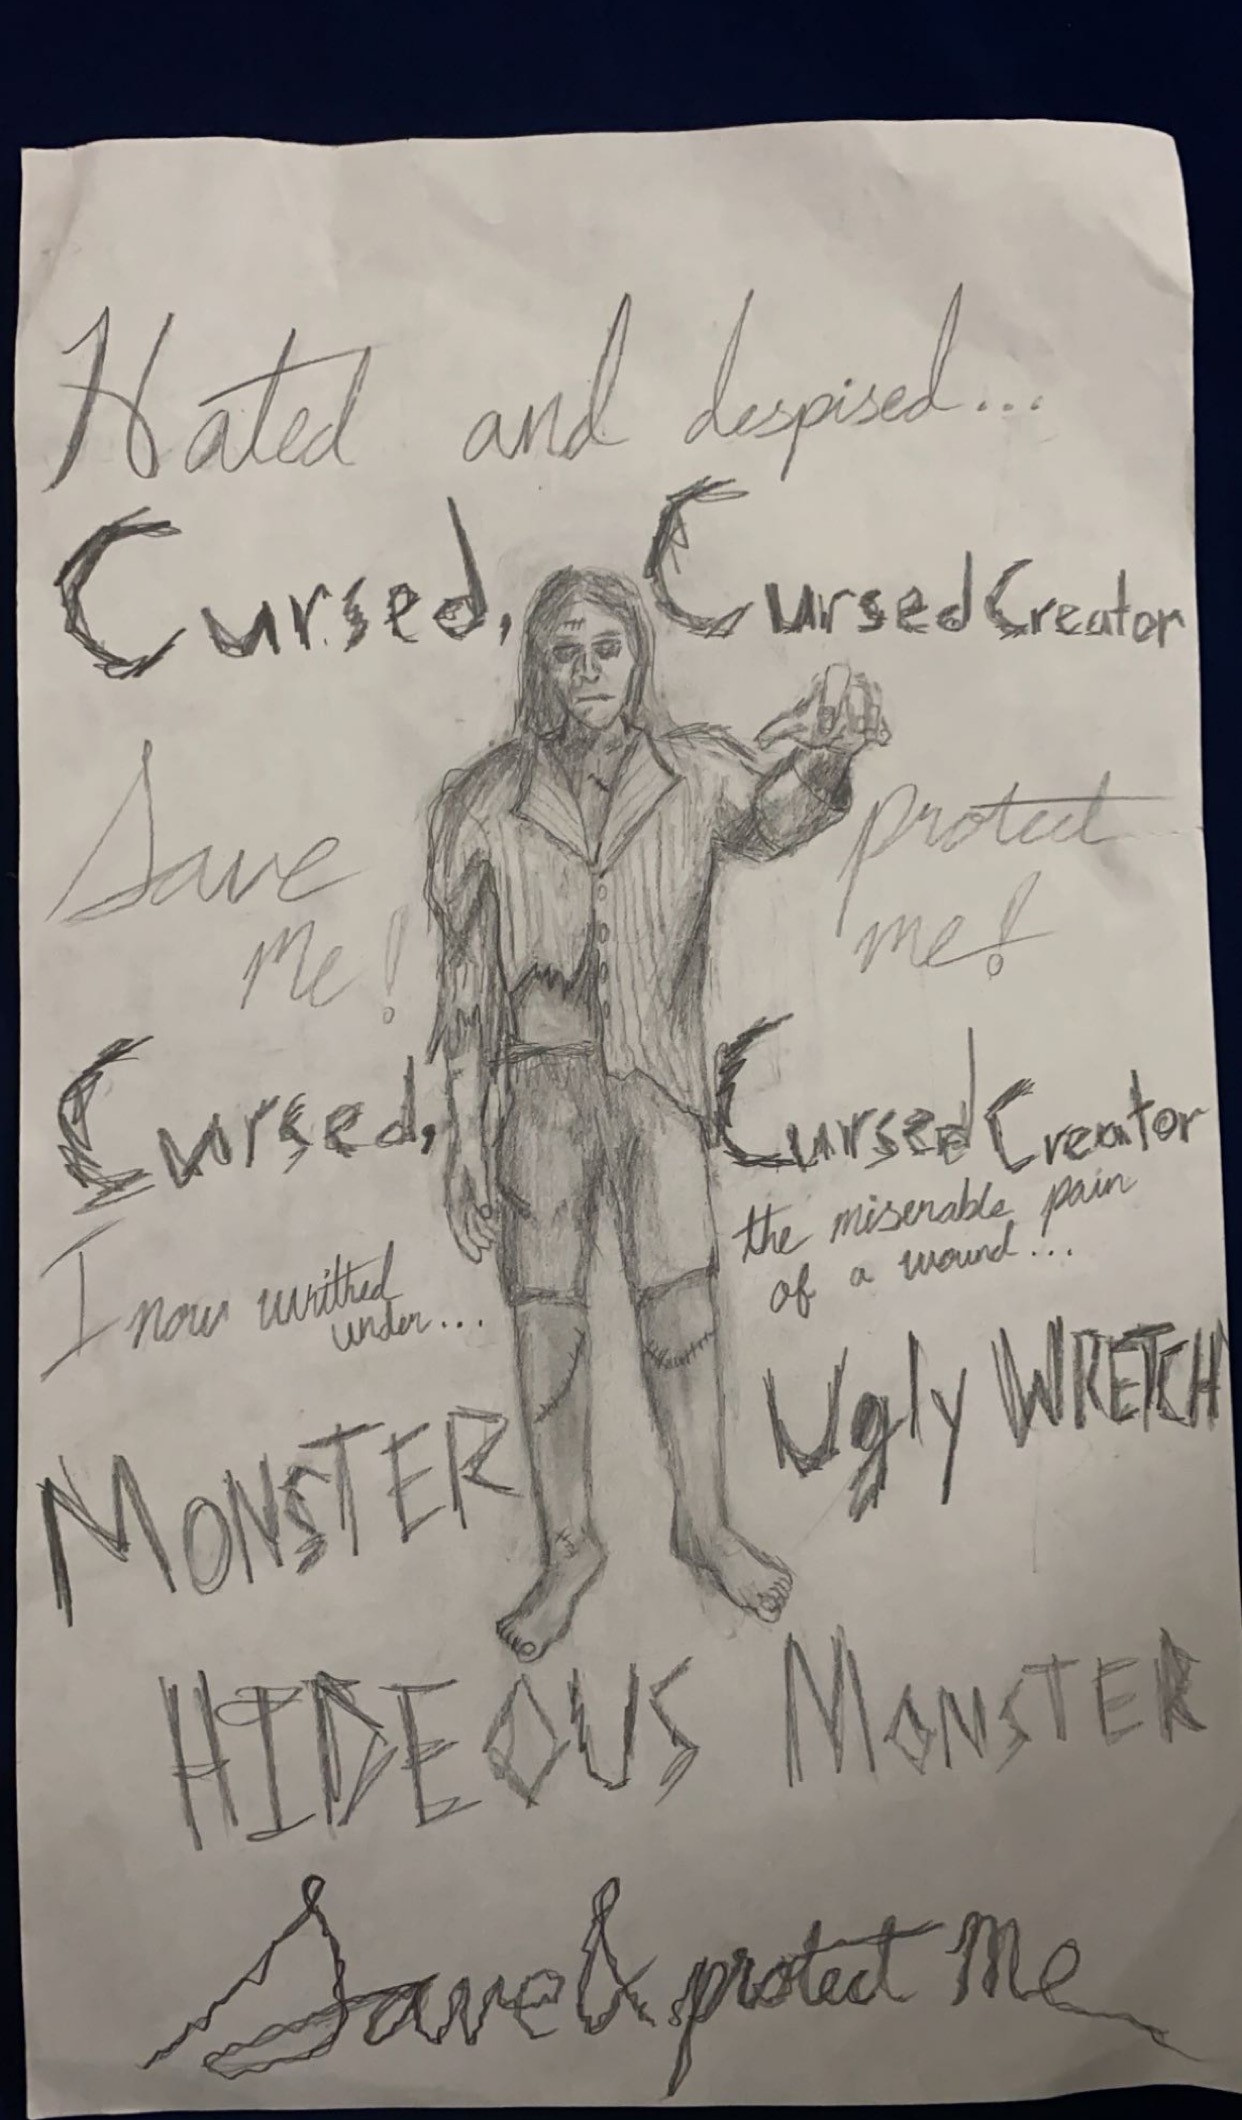 Hated and despised...
Cursed, Cursed Creator
Save protect
me! me!
Cursed, Cursed Creator
I now writhed the miserable pain
under... of a wound...
MONSTER Ugly WRETCH
HIDEOUS MONSTER
Save & protect me